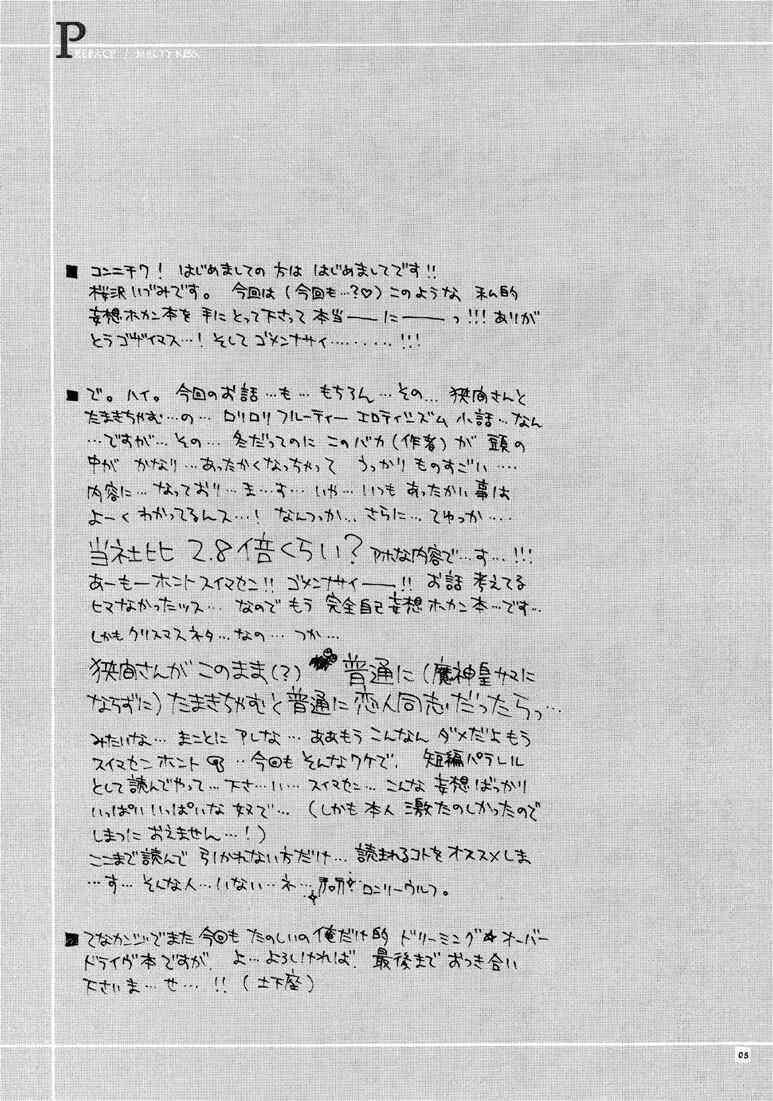 PREFACE / MELTY KISS
■ コンニチワ! はじめましての方は はじめましてです!!
桜沢いづみです。 今回は(今回も…?♡)このような、私的
妄想ホカン本を手にとって下さって本当――に――っ!!!ありが
とうゴザイマス…!そしてゴメンナサイ……...!!!
■ で。ハイ。今回のお話…も…もちろん…その… 狭間さんと
たまきちゃむ…の… ロリロリフルーティー エロティシズム 小話…なん
…ですが… その… 冬だってのに このバカ(作者)が 頭の
中が かなり…あったかくなっちゃって うっかり ものすごい…
内容に… なっており…ま…す… いや… いつも あったかい事は
よーく わかってるんス…! なんつっか… さらに… てゆっか…
当社比 2.8倍くらい? アホな内容で…す…!!!
あーもーホントスイマセン!! ゴメンナサイ――!! お話 考えてる
ヒマなかったッス… なのでもう 完全自己妄想ホカン本…です…
しかもクリスマスネタ…なの… つか…
狭間さんが このまま(?) 普通に(魔神皇サマに
ならずに)たまきちゃむと普通に恋人同志だったらっ…
みたいな… まことに アレな… ああもう こんなん ダメだよ もう
スイマセンホント ‥今回も そんなワケで、 短編パラレル
として読んでやって…下さ…い… スイマセン… こんな 妄想ばっかり
いっぱい いっぱいな 奴で… (しかも本人 激たのしかったので
しまつに おえません…!)
ここまで読んで 引かれない方だけ… 読まれるコトをオススメしま
…す… そんな人…いない…ネ… ロンリーウルフ。
■ てなカンジでまた 今回も たのしいの 俺だけ的 ドリーミング☆オーバー
ドライヴ本ですが、 よ…よろしければ、 最後まで おつき合い
下さいま…せ…!! (土下座)
05